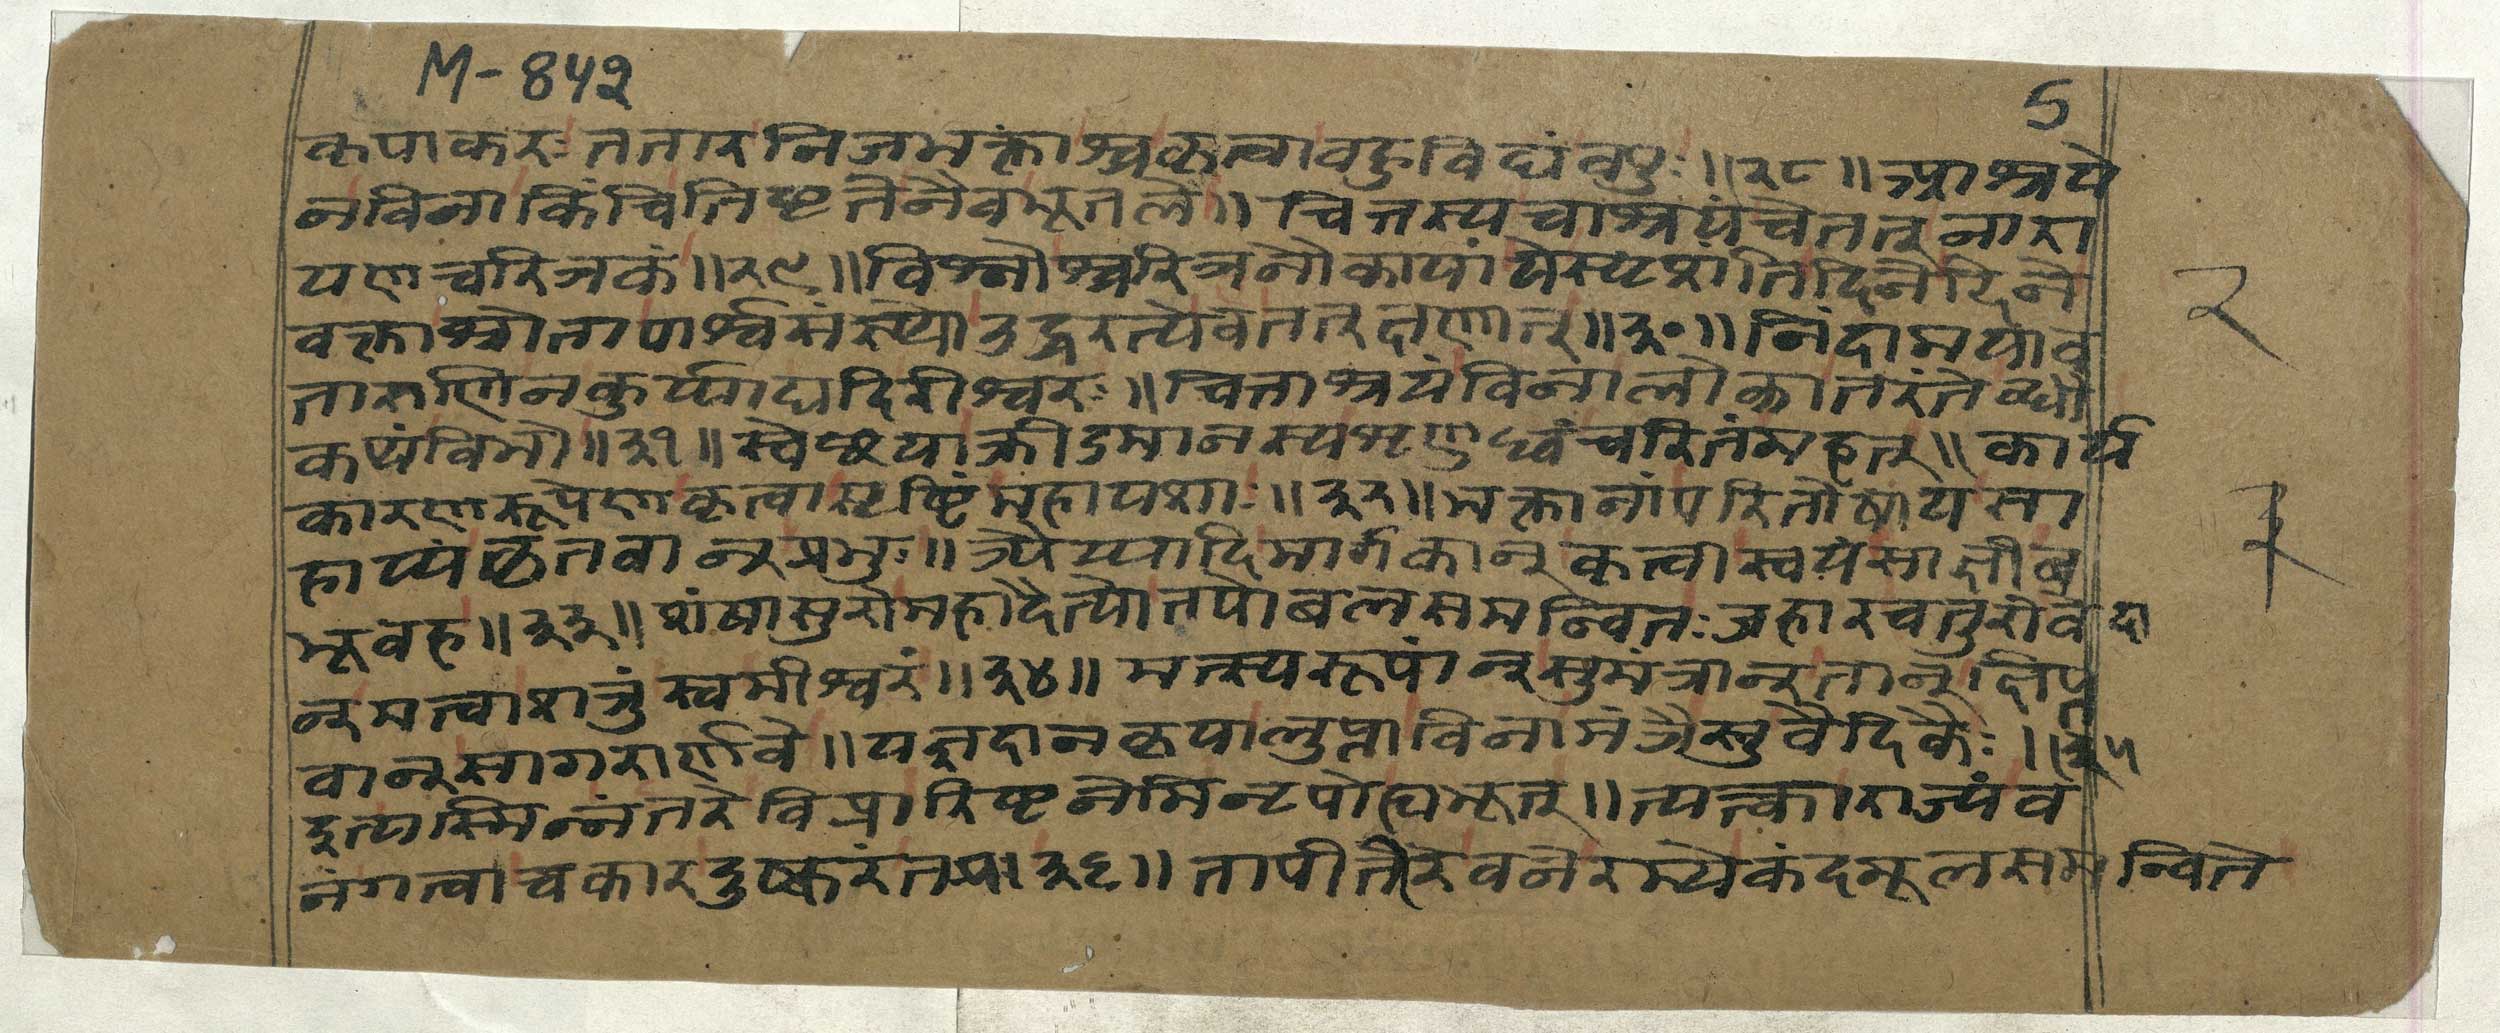 M-84२
5
कृपाकरः ततार निजभक्तांश्च कृत्वा बहुविधं वपुः ॥२८॥ आश्रये
न विना किंचित्तिष्टतेनेव भूतले ॥ चित्तस्य चाश्रयं चेतत् नारा
यण चरित्रकं ॥२९॥ विश्नौश्चरित्रनौकायां येस्पृशंति दिनेदिने
वक्ता श्रोता पार्श्वसंस्था उद्धरत्येव तत्क्षणात् ॥३०॥ निंदामथाव
ताराणि न कुर्य्याद्यदिरीश्वरः ॥ चित्ताश्रयं विना लोका तरंते
कथं विभो ॥३१॥ स्वेछया क्रीडमानस्य शृणुध्वं चरितं महत् ॥ कार्य
कारणरूपेण कृत्वा सृष्टिं महायशाः ॥३२॥ भक्तानां परितोषाय सा
हाय्यं कृतवान् प्रभुः ॥ कृत्वा स्वयं साक्षी ब
भूवह ॥३३॥ शंषासुरो महादैत्यो तपोबलसमन्वितः जहार चतुरो वेदा
न् मत्वा शत्रुं स्वमीश्वरं ॥३४॥ मत्स्यरूपां न् सुमंत्रान् तान् क्षिप्त
वान् सागरार्णवे ॥ यज्ञदानकृपालुप्ता विना मंत्रैस्तु वैदिकैः ॥३५
एतस्मिन्नंतरे विप्रारिष्टनेमिनृपो ह्यभूत् ॥ त्यत्का राज्यं व
नं गत्वा चकार दुष्करं तप ॥३६॥ तापीतीरे वने रम्ये कंदमूलसमन्विते
२